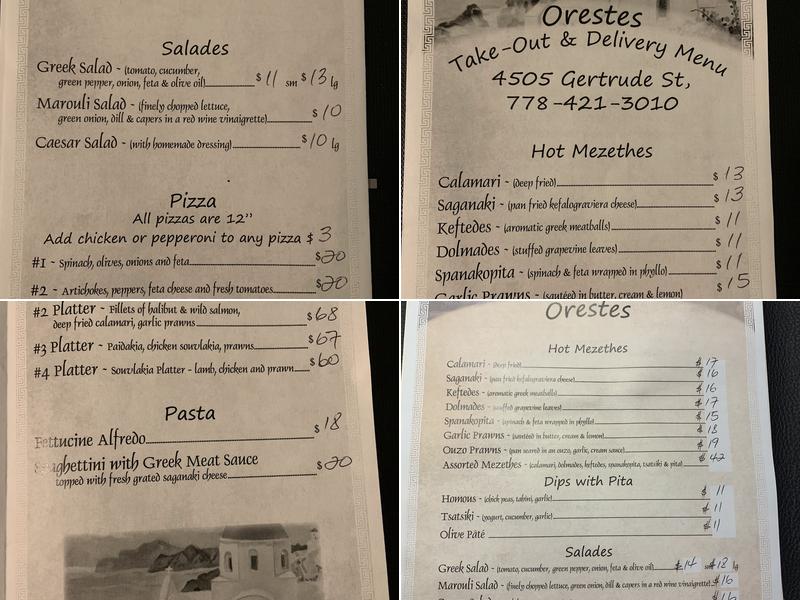 Salades
Greek Salad - (tomato, cucumber,
green pepper, onion, feta & olive oil) $ 11 sm $ 13 lg
Marouli Salad - (finely chopped lettuce,
green onion, dill & capers in a red wine vinaigrette) $ 10
Caesar Salad - (with homemade dressing) $ 10 lg
Pizza
All pizzas are 12”
Add chicken or pepperoni to any pizza $ 3
#1 - Spinach, olives, onions and feta $20
#2 - Artichokes, peppers, feta cheese and fresh tomatoes $20
Orestes
Take-Out & Delivery Menu
4505 Gertrude St,
778-421-3010
Hot Mezethes
Calamari - (deep fried) $ 13
Saganaki - (pan fried kefalograviera cheese) $ 13
Keftedes - (aromatic greek meatballs) $ 11
Dolmades - (stuffed grapevine leaves) $ 11
Spanakopita - (spinach & feta wrapped in phyllo) $ 11
Garlic Prawns - (sautéed in butter, cream & lemon) $ 15
#2 Platter - Fillets of halibut & wild salmon,
deep fried calamari, garlic prawns $68
#3 Platter - Paidakia, chicken souvlakia, prawns $67
#4 Platter - Souvlakia Platter - lamb, chicken and prawn $60
Pasta
Fettucine Alfredo $ 18
Spaghettini with Greek Meat Sauce
topped with fresh grated saganaki cheese $ 20
Orestes
Hot Mezethes
Calamari - (deep fried) $ 17
Saganaki - (pan fried kefalograviera cheese) $ 16
Keftedes - (aromatic greek meatballs) $ 16
Dolmades - (stuffed grapevine leaves) $ 17
Spanakopita - (spinach & feta wrapped in phyllo) $ 15
Garlic Prawns - (sautéed in butter, cream & lemon) $ 18
Ouzo Prawns - (pan seared in an ouzo, garlic, cream sauce) $ 19
Assorted Mezethes - (calamari, dolmades, keftedes, spanakopita, tsatsiki & pita) $ 42
Dips with Pita
Homous - (chick peas, tahini, garlic) $ 11
Tsatsiki - (yogurt, cucumber, garlic) $ 11
Olive Pâté $ 11
Salades
Greek Salad - (tomato, cucumber, green pepper, onion, feta & olive oil) $14 sm $18 lg
Marouli Salad - (finely chopped lettuce, green onion, dill & capers in a red wine vinaigrette) $16